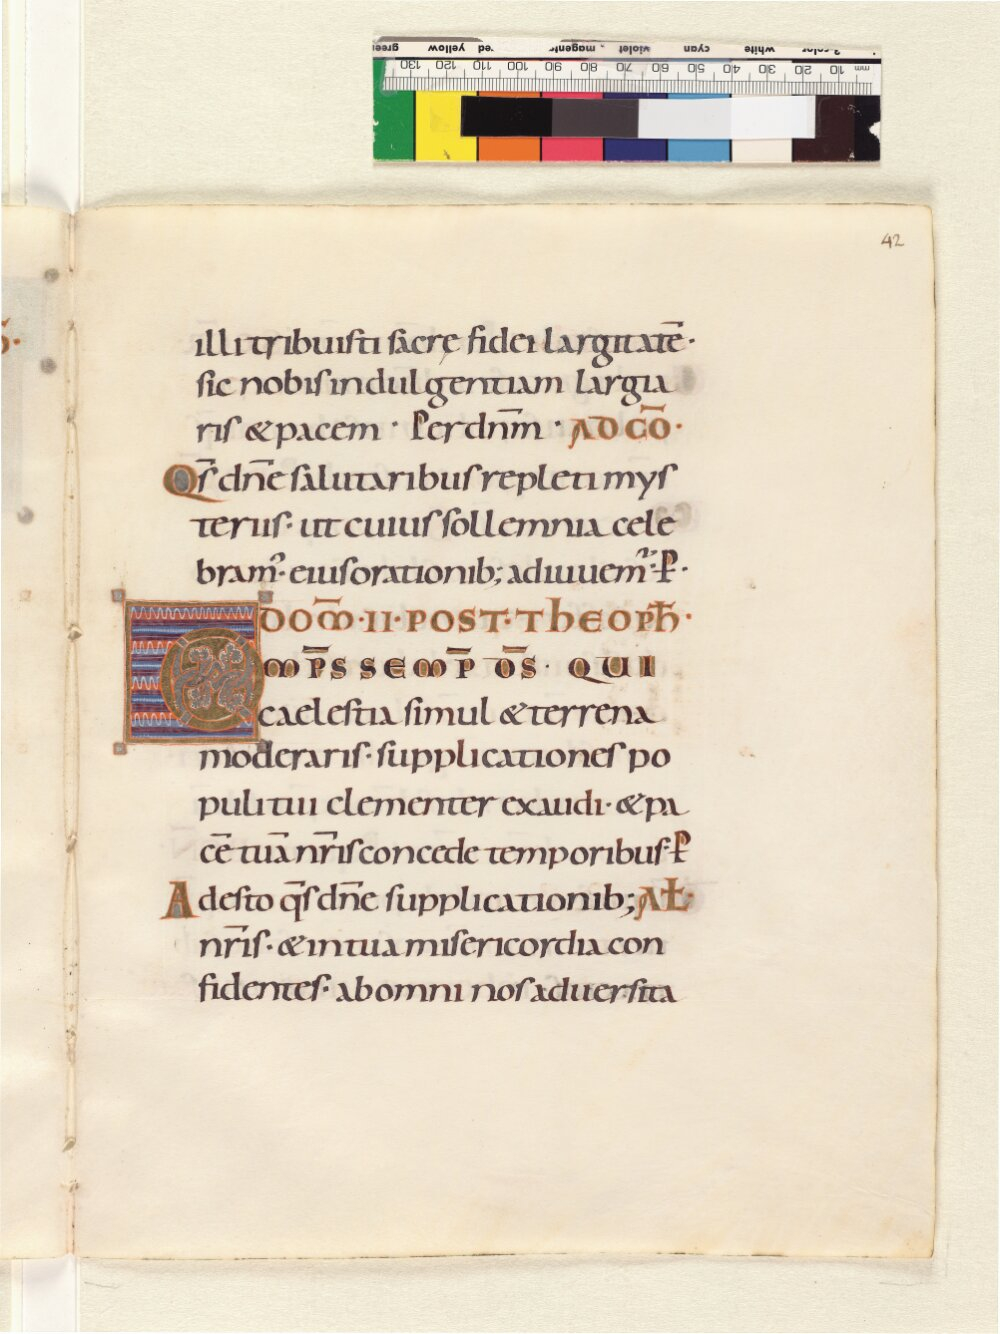 green yellow red magenta violet cyan white 3-color
mm 10 20 30 40 50 60 70 80 90 100 110 120 130
42
illi tribuisti sacre fidei largitatē·
sic nobis indulgentiam largia
ris & pacem · Per dnm̄ · AD CŌ·
Qs̄ dn̄e salutaribus repleti mys
teriis· ut cuius sollemnia cele
bram᷒· eius orationib; adiuuem᷒· P̱·
DOM̄·II·POST·ThEOPh̄·
OMP̄S SEMP̄ D̄S· QUI
caelestia simul & terrena
moderaris· supplicationes po
puli tui clementer exaudi· & pa
cē tuā nr̄is concede temporibus· P̱
Adesto qs̄ dn̄e supplicationib; AL̵·
nr̄is· & in tua misericordia con
fidentes· ab omni nos aduersita